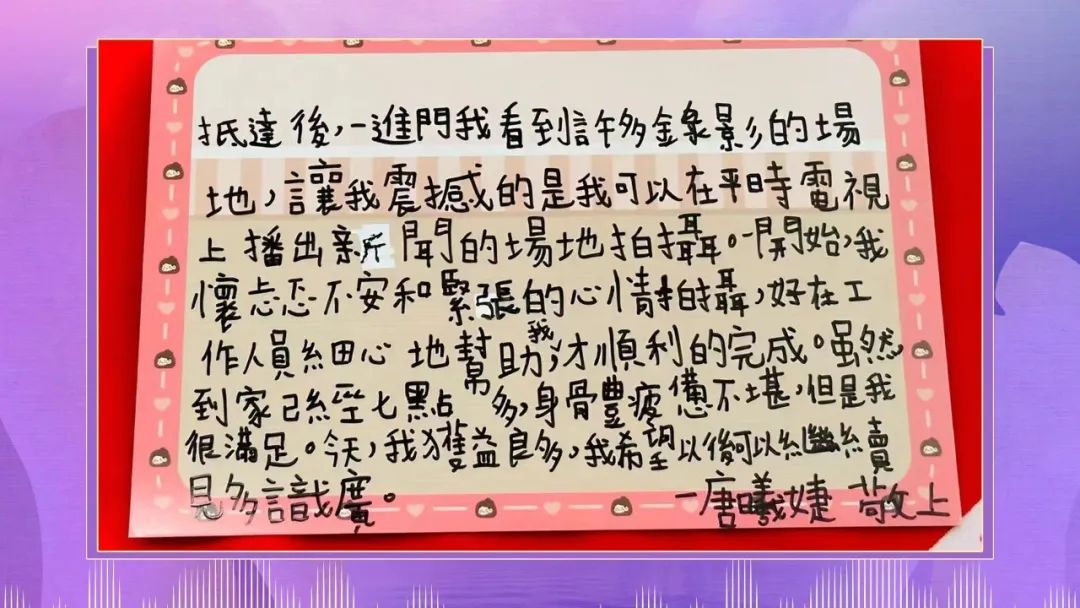 抵達後,一進門我看到許多錄影的場
地,讓我震撼的是我可以在平時電視
上播出新聞的場地拍攝。一開始,我
懷忐忑不安和緊張的心情拍攝,好在工
作人員細心地幫助我,才順利的完成。雖然
到家已經七點多,身體疲憊不堪,但是我
很滿足。今天,我獲益良多,我希望以後可以繼續
見多識廣。 —唐曦婕 敬上